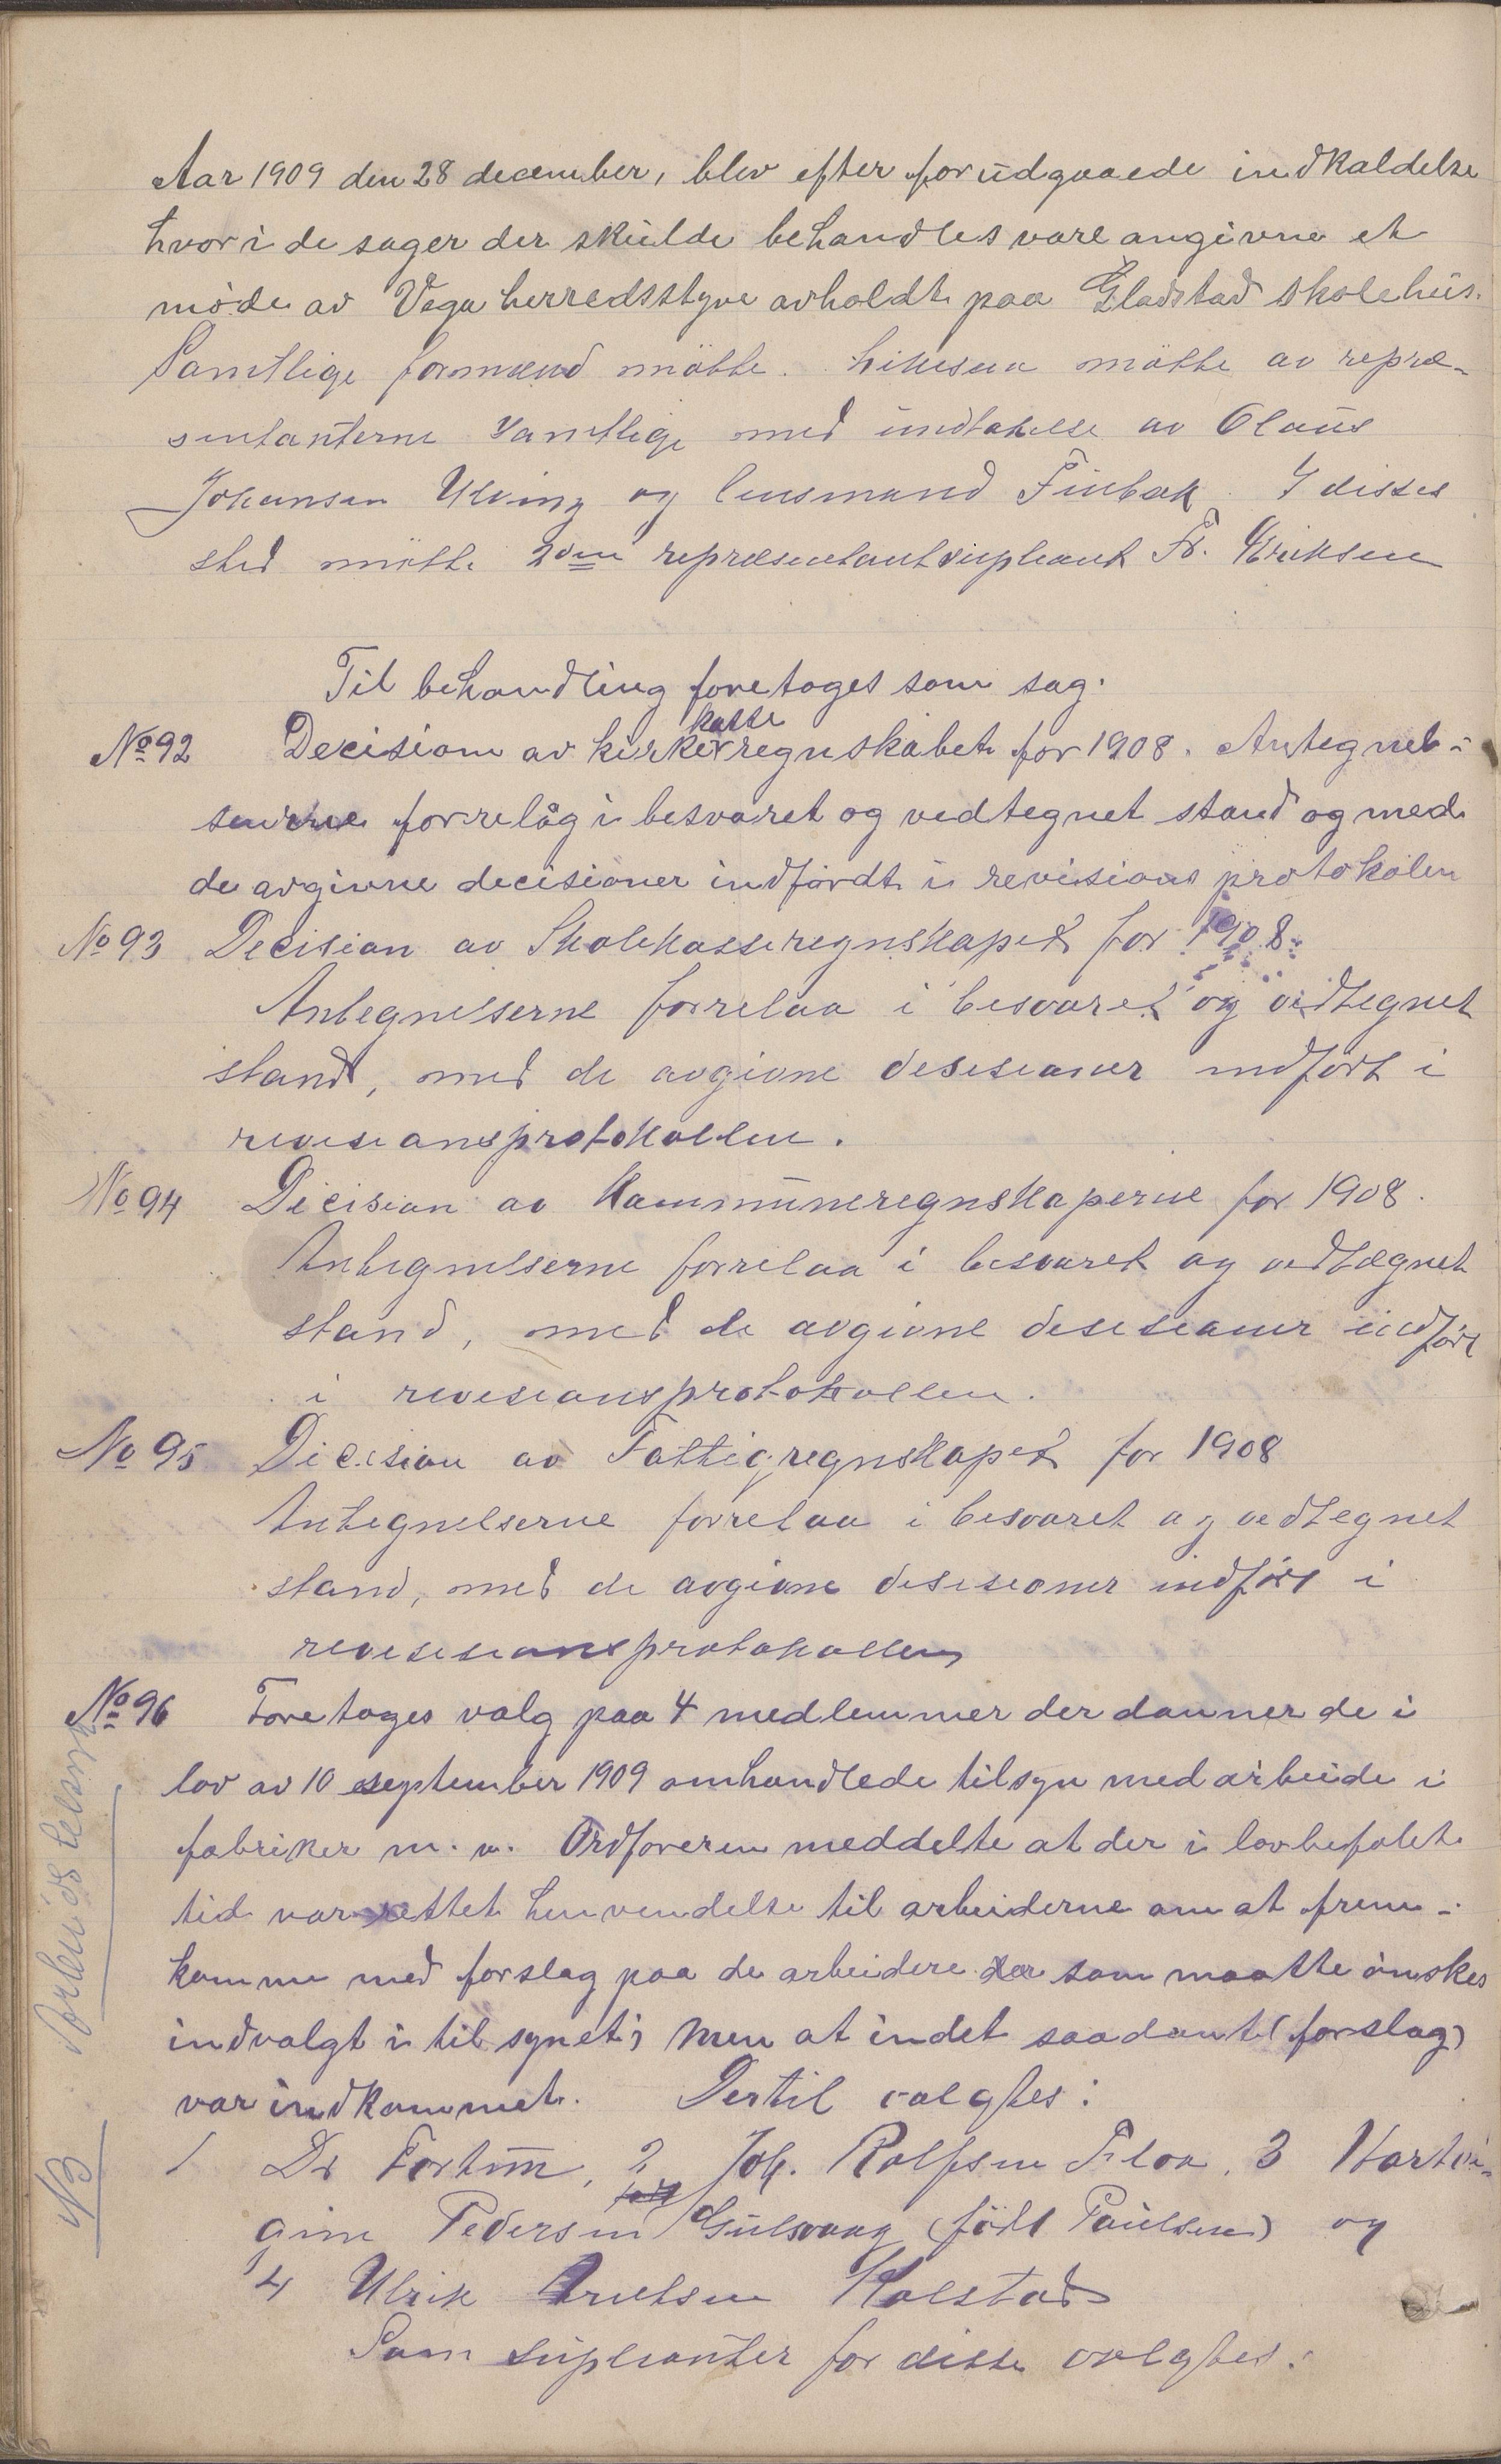 Aar 1909 den 28 december, blev efter forudgaaede indkaldelse
hvori de sager der skulde behandles vare angivne et
møde av Vega herredsstyre avholdt paa Gladstad skolehus.
Samtlige formænd møtte. Likesaa møtte av repræ-
sentanterne samtlige med undtakelse av Olaus
Johansen Ulving og lensmand Finbak. I disses
sted møtte 2den repræsentantsupleant Fr. Eriksen
Til behandling foretoges som sag.
No 92 Decision av kirkekasseregnskabet for 1908. Antegnel-
serne forrelåg i besvaret og vedtegnet stand og med
de avgivne decisioner indførdt i revisions protokolen
No 93 Decision av Skolekasseregnskapet for 1908.
Antegnelserne forrelaa i besvaret og vedtegnet
stand, med de avgivne desisioner indført i
revisionsprotokollen.
No 94 Dicision av Kommuneregnskaperne for 1908.
Antegnelserne forrelaa i besvaret og vedtegnet
stand, med de avgivne desisioner indført
i revisionsprotokollen.
No 95 Dicision av Fattigregnskapet for 1908
Antegnelserne forrelaa i besvaret og vedtegnet
stand, med de avgivne desisioner indført i
revisisionsprotokollen
No 96 Foretoges valg paa 4 medlemmer der danner de i
lov av 10 september 1909 omhandlede tilsyn med arbeide i
fabriker m. v. Ordføreren meddelte at der i lovbefalet
tid var rettet henvendelse til arbeiderne om at frem-
komme med forslag paa de arbeidere der som maatte ønskes
indvalgt i tilsynet; men at indet saadant (forslag)
var indkommet. Dertil valgtes:
1 Dr Fortun, 2 Joh. Rolfsen Floa, 3 Hartvi-
gine Pedersen Gulsvaag (født Paulsen) og
4 Ulrik Arntsen Kolstad
Som supleanter for disse valgtes:
NB Arbeidstilsyn